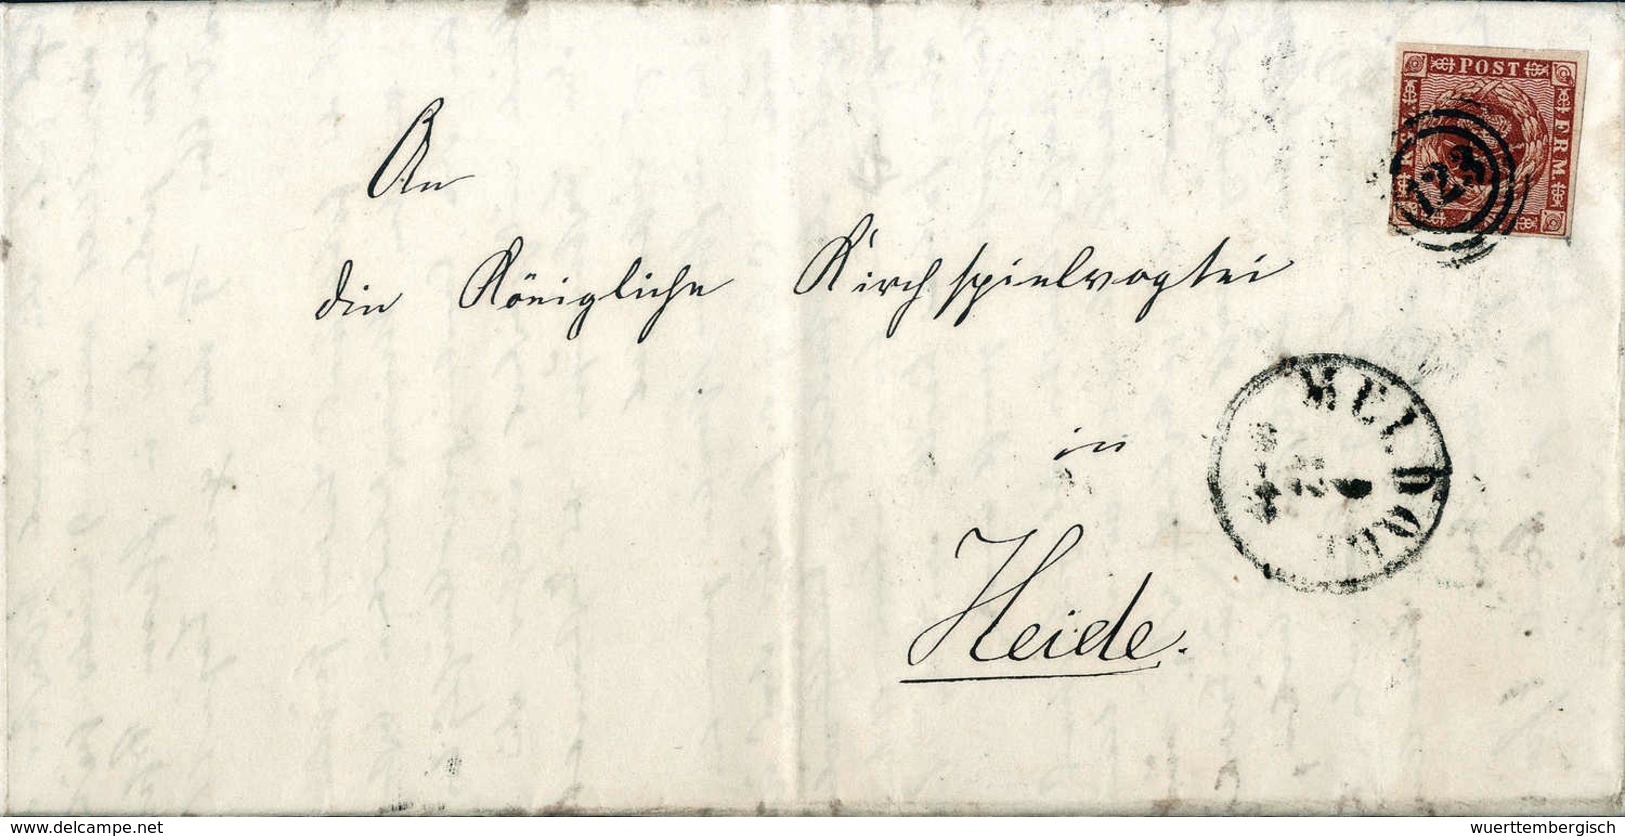 POST
FRM
123
An
die Königliche Kirchspielvogtei
MELDORF
in
Heide.
www.delcampe.net
wuerttembergisch